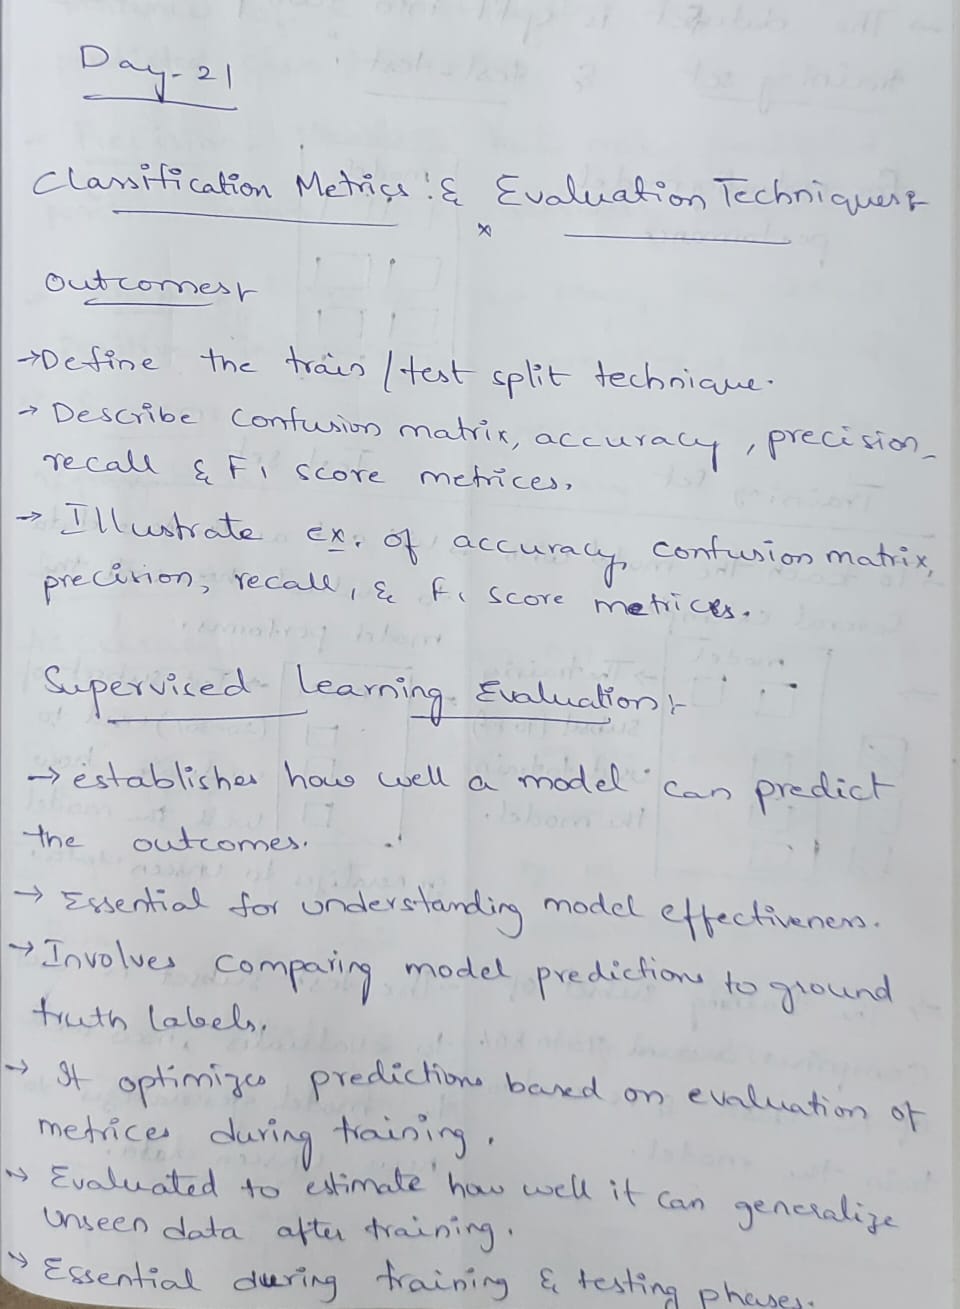 Day-21
Classification Metrics & Evaluation Techniques:-
Outcomes:-
→Define the train/test split technique.
→ Describe confusion matrix, accuracy, precision,
recall & F1 score metrices.
→ Illustrate ex. of accuracy, confusion matrix,
precision, recall, & F1 score metrices.
Supervised Learning Evaluation:-
→ establishes how well a model can predict
the outcomes.
→ Essential for understanding model effectiveness.
→ Involves comparing model predictions to ground
truth labels.
→ It optimizes predictions based on evaluation of
metrices during training.
→ Evaluated to estimate how well it can generalize
unseen data after training.
→ Essential during training & testing phases.